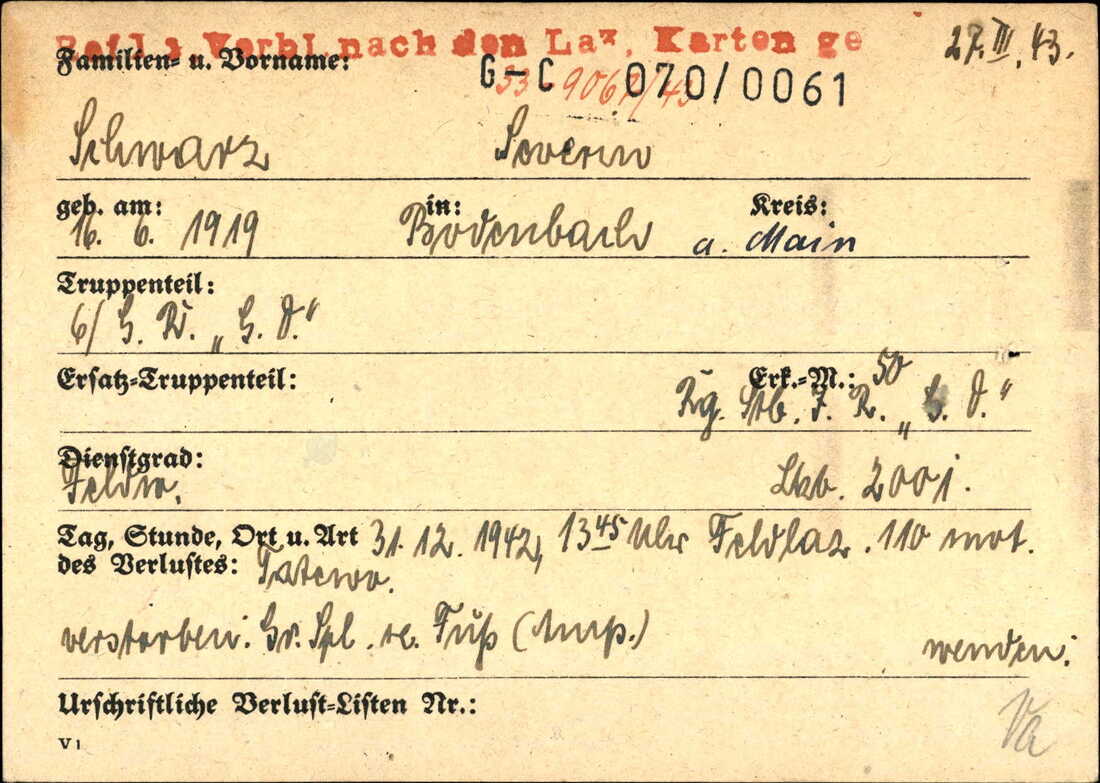 Verbl. nach den Laz. Karten ge
27. III. 43.
Familien- u. Vorname:
G-C 070/0061
Schwarz Severin
geb. am: in: Kreis:
16. 6. 1919 Bodenbach a. Main
Truppenteil:
6/ G. R. „G. D.“
Ersatz-Truppenteil: Erk.-M.: 50
Stb. J. R. „G. D.“
Dienstgrad:
Feldw. 2001.
Tag, Stunde, Ort u. Art 31. 12. 1942, 13 45 Uhr Feldlaz. 110 mot.
des Verlustes: Tatewo.
verstorben. Gr. Spl. re. Fuß (Amp.) wenden.
Urschriftliche Verlust-Listen Nr.:
V 1